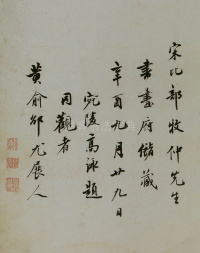 宋比部牧仲先生
書畫府儲藏
辛酉九月廿九日
宛陵高詠題
同觀者
黃俞邰九展人